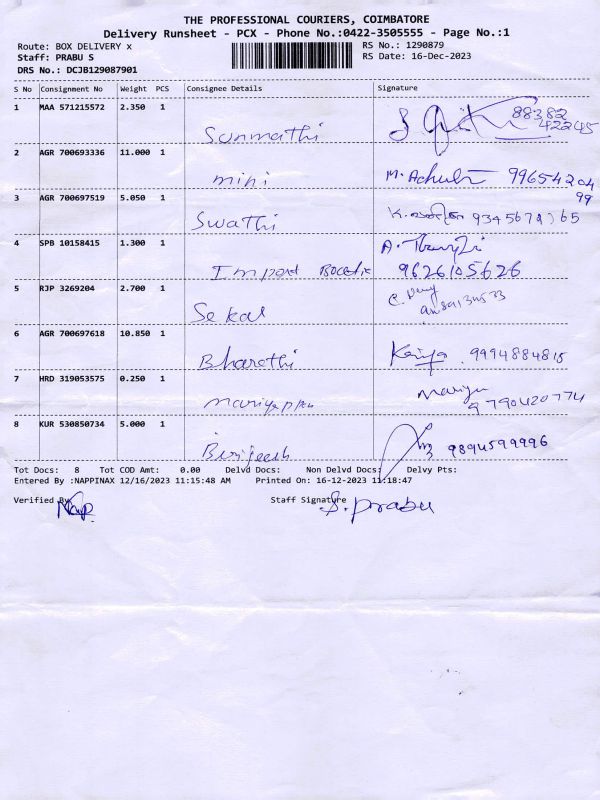 THE PROFESSIONAL COURIERS, COIMBATORE
Delivery Runsheet - PCX - Phone No.:0422-3505555 - Page No.:1
Route: BOX DELIVERY x RS No.: 1290879
Staff: PRABU S RS Date: 16-Dec-2023
DRS No.: DCJB129087901
S No Consignment No Weight PCS Consignee Details Signature
1 MAA 571215572 2.350 1 88382
Sunmathi 42245
2 AGR 700693336 11.000 1
mini M. 99654204
99
3 AGR 700697519 5.050 1
Swathi K.
4 SPB 10158415 1.300 1 A.
Import 9626105626
5 RJP 3269204 2.700 1 C.
Sekar
6 AGR 700697618 10.850 1
Bharathi 9994884815
7 HRD 319053575 0.250 1
Mariyappan 9790420774
8 KUR 530850734 5.000 1
9894599996
Tot Docs: 8 Tot COD Amt: 0.00 Delvd Docs: Non Delvd Docs: Delvy Pts:
Entered By :NAPPINAX 12/16/2023 11:15:48 AM Printed On: 16-12-2023 11:18:47
Verified By Staff Signature
S. Prabu